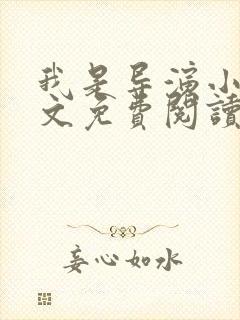 我是导演小
文免費閱讀
妄心如水